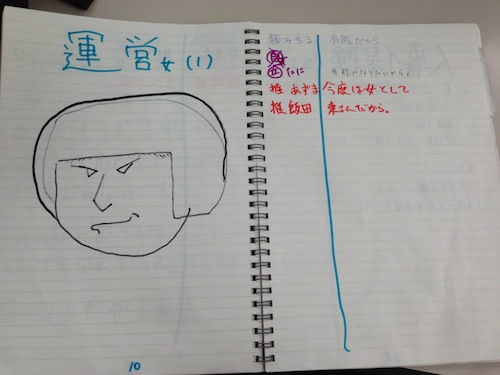 運営女(1)
10
囲みちる 有能だから
立 たに 有能になりたいから。
推 あずま 今度は女として
推 飯田 東さんだから。